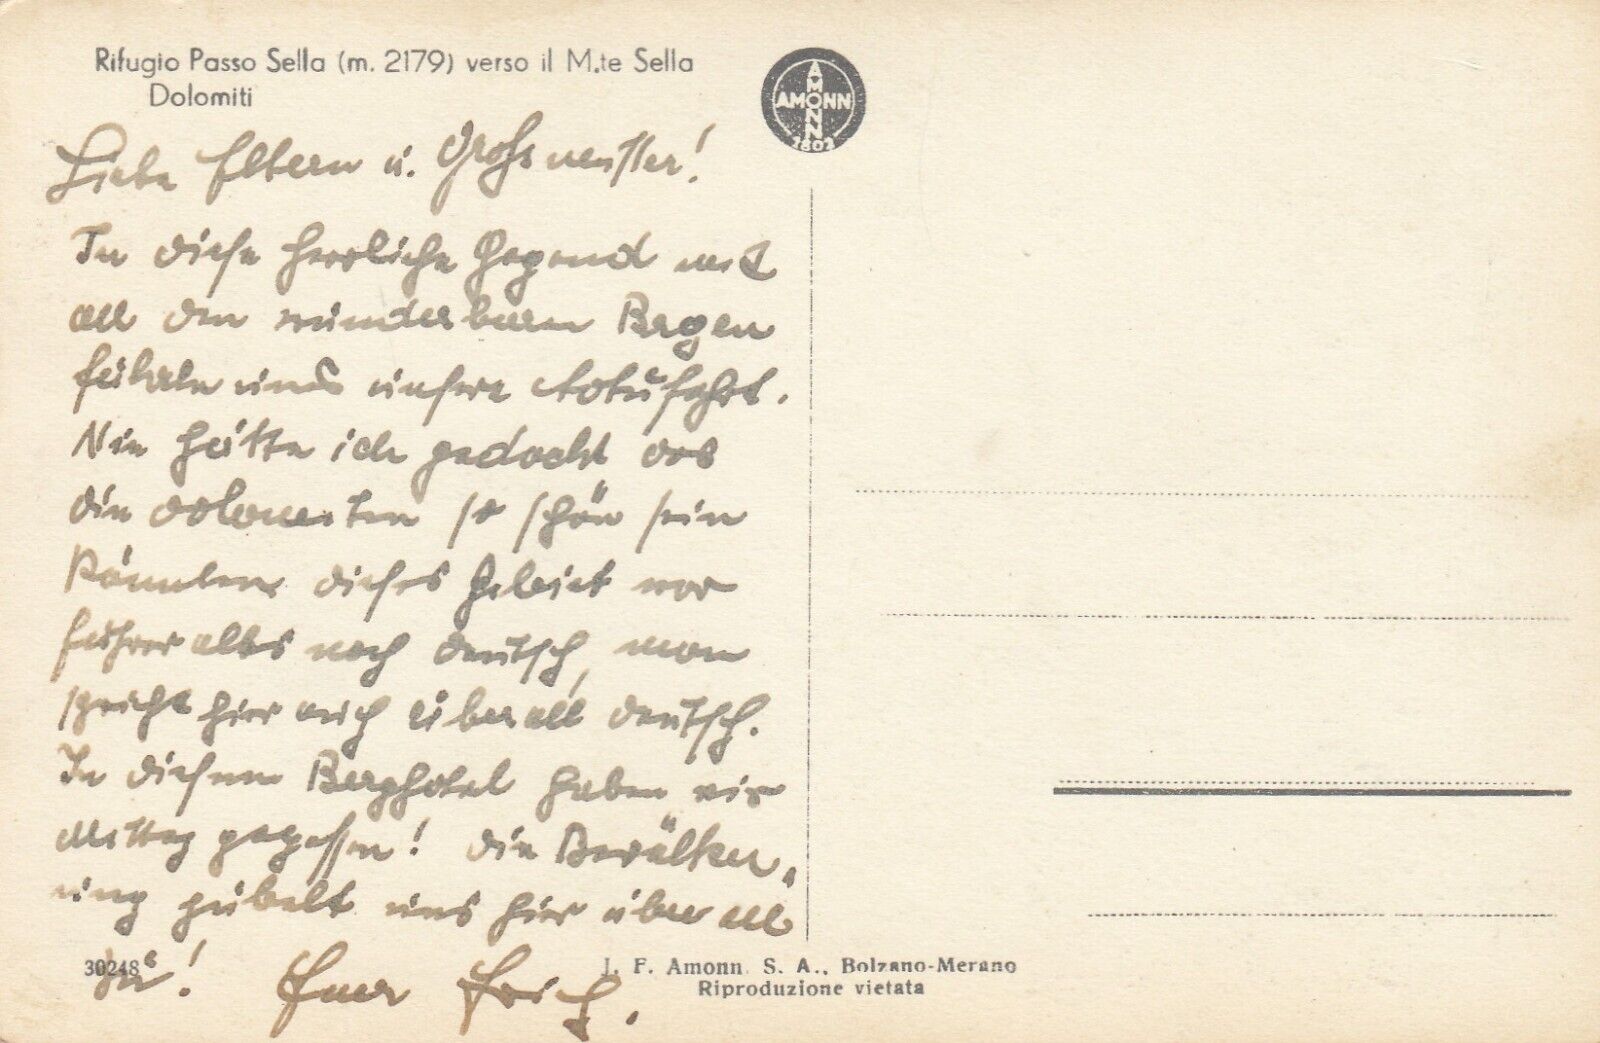 Rifugio Passo Sella (m. 2179) verso il M.te Sella
Dolomiti
AMONN
AMONN
1802
Liebe Eltern u. Großmutter!
In diese herrliche Gegend mit
all den wunderbaren Bergen
führte uns unsere Autofahrt.
Nie hätte ich gedacht das
die Dolomiten so schön sein
könnten. dieses Gebiet war
früher alles noch deutsch, man
spricht hier auch überall deutsch.
In diesem Berghotel haben wir
Mittag gegessen! Die Bevölker-
ung jubelt uns hier überall
zu! Euer Erich.
30248
J. F. Amonn S. A., Bolzano-Merano
Riproduzione vietata